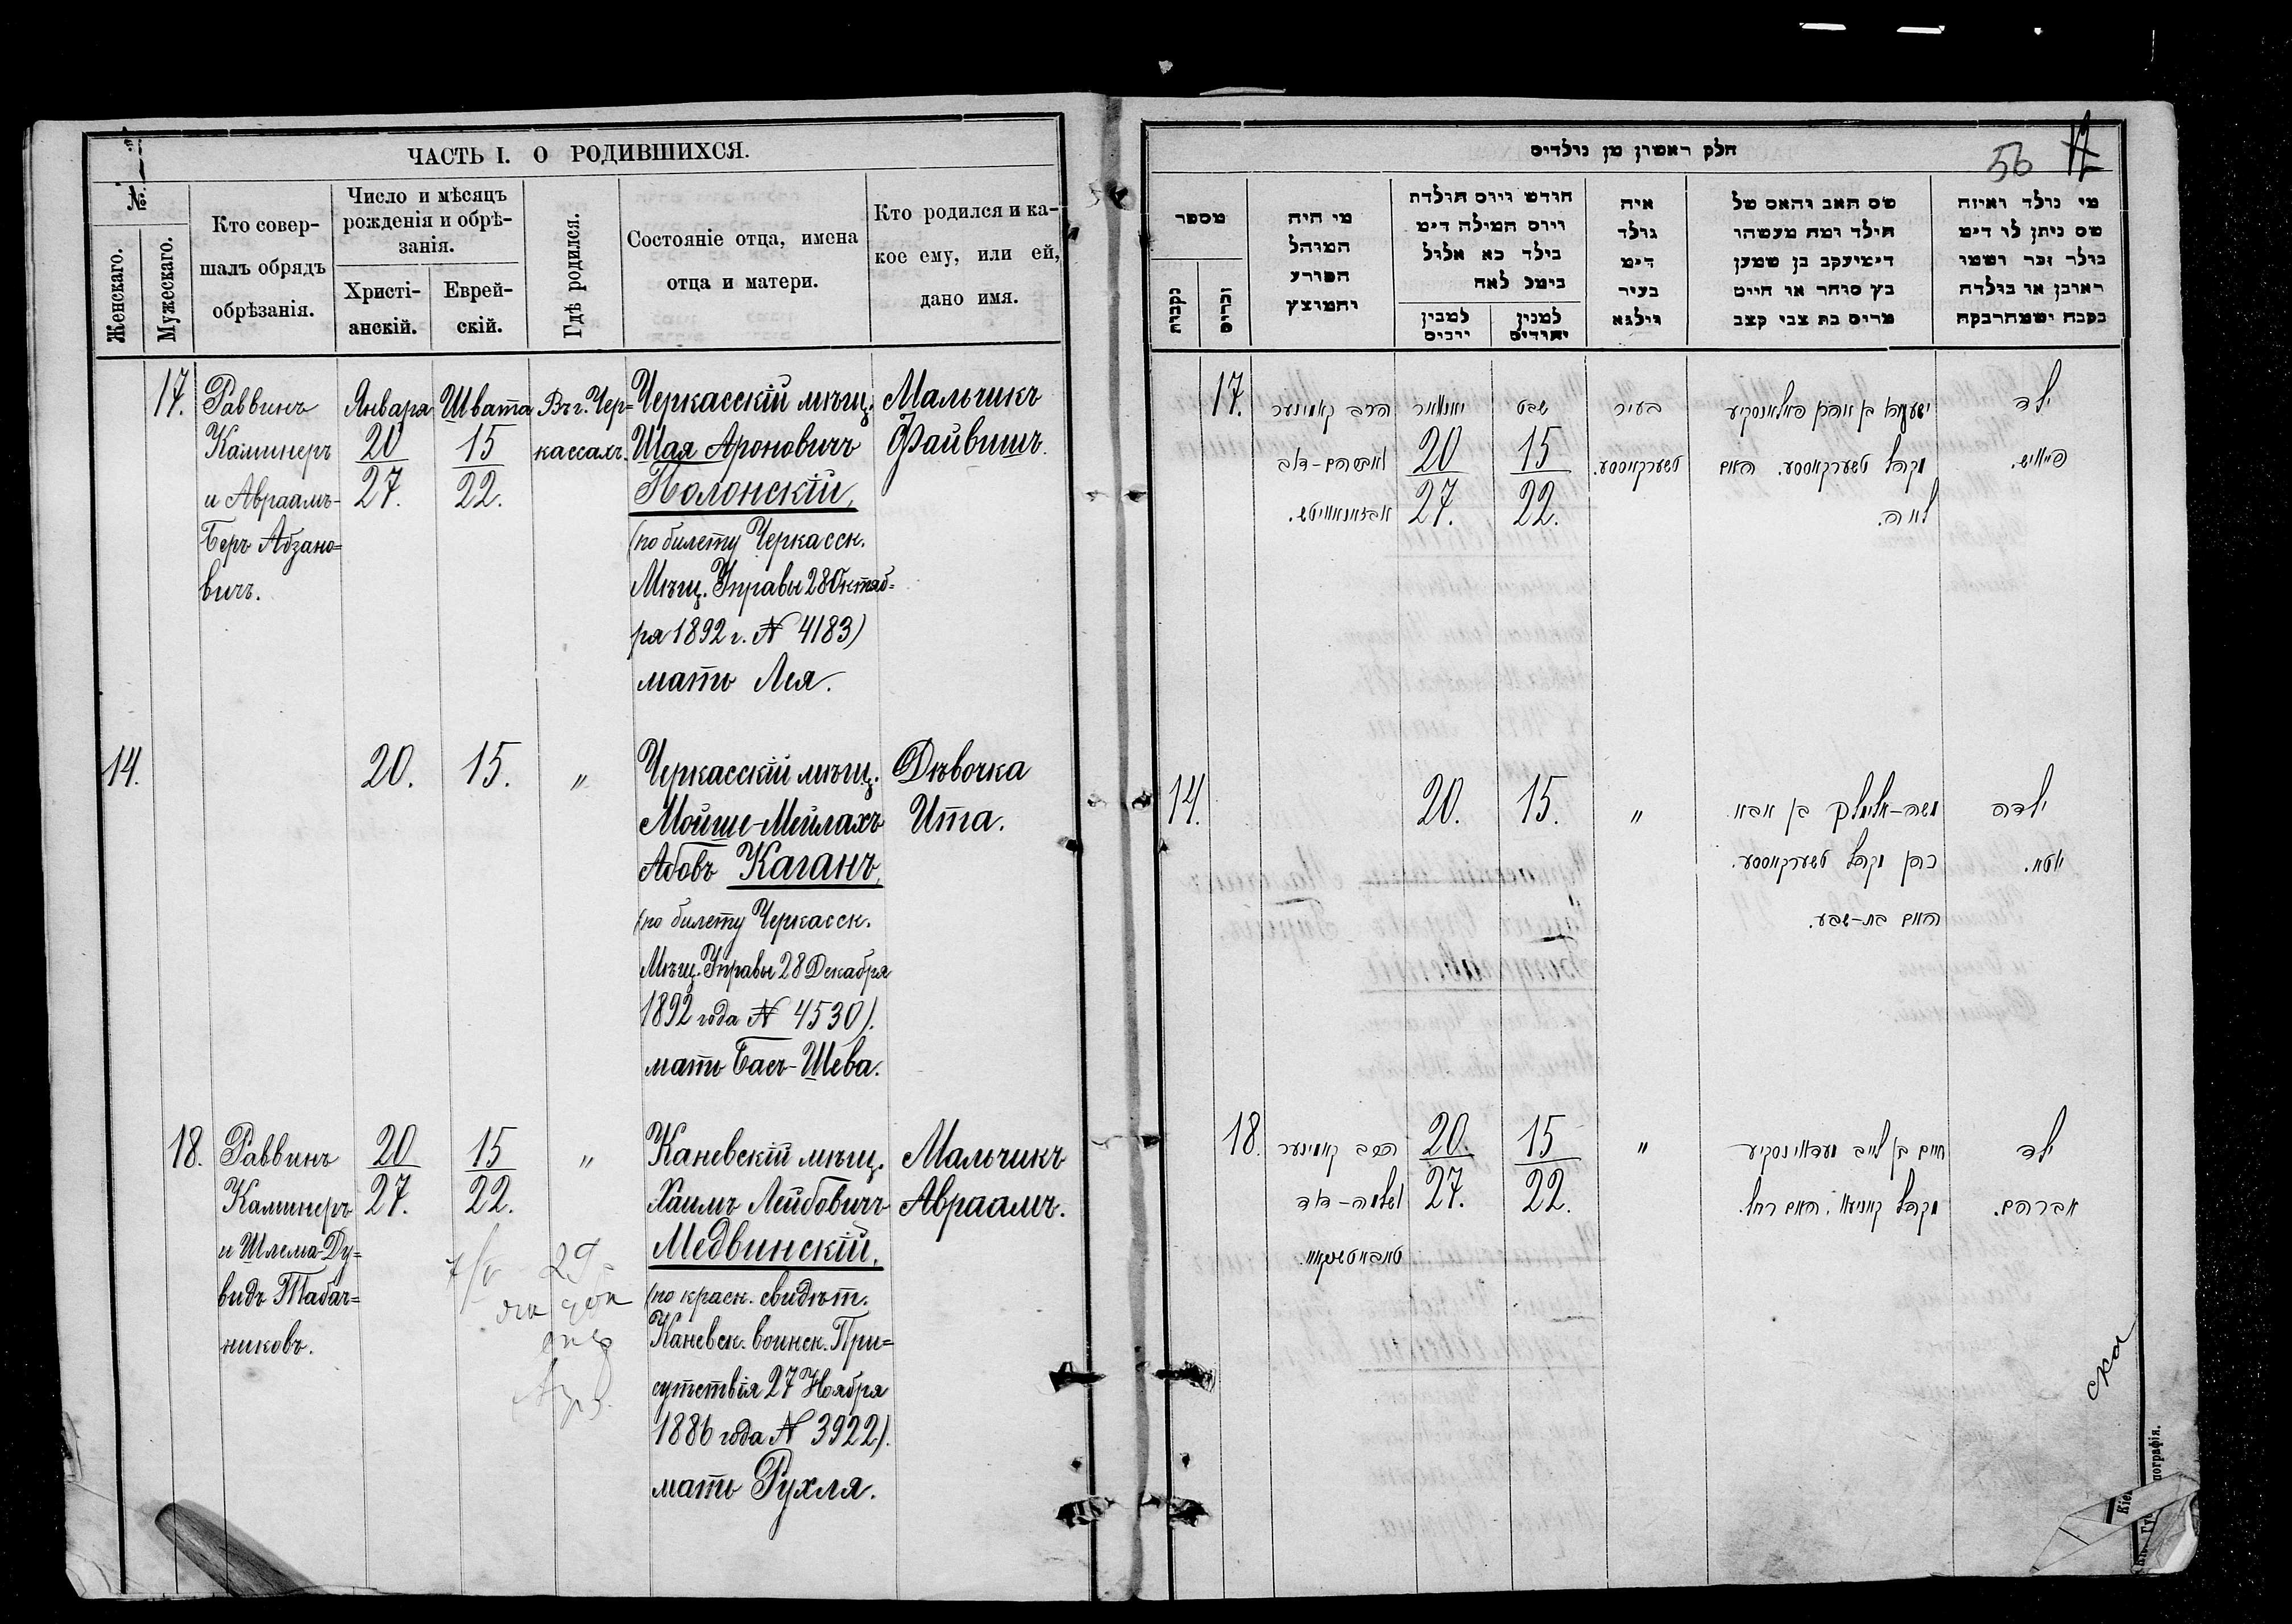 ЧАСТЬ I. О РОДИВШИХСЯ.
№.
Женскаго.
Мужескаго.
Кто совер-
шалъ обрядъ
обрѣзанія.
Число и мѣсяцъ
рожденія и обрѣ-
занія.
Христі-
анскій.
Еврей-
скій.
Гдѣ родился.
Состояніе отца, имена
отца и матери.
Кто родился и ка-
кое ему, или ей,
дано имя.
17.
Раввинъ
Каминеръ
и Авраамъ-
Беръ Абзано=
вичъ.
Января
20
27.
Швата
15
22.
Въ г. Чер=
кассахъ.
Черкасскій мѣщ.
Шая Ароновичъ
Полонскій,
(по билету Черкасск.
Мѣщ. Управы 28 Октяб=
ря 1892 г. № 4183)
мать Лея.
Мальчикъ
Файвишъ.
14.
20.
15.
"
Черкасскій мѣщ.
Мойше-Мейлахъ
Абовъ Каганъ,
(по билету Черкасск.
Мѣщ. Управы 28 Декабря
1892 года № 4530).
мать Бась-Шева.
Дѣвочка
Ита.
18.
Раввинъ
Каминеръ
и Шлема-Ду=
видъ Табач=
никовъ.
20
27.
15
22.
"
Каневскій мѣщ.
Хаимъ Лейбовичъ
Медвинскій,
(по красн. свидѣт.
Каневск. воинск. При=
сутствія 27 Ноября
1886 года № 3922).
мать Рухля.
Мальчикъ
Авраамъ.
חלק ראשון מן נולדים
56
12
מספר
נקבות
זכרים
מי היה
המוהל
הפורע
והמוצץ
חודש ויום תולדת
ויום המילה דימ
בילד כא אלול
בימל לאח
למנין
יהודים
איה
נולד
דימ
בעיר
ווילנא
שם האב והאם של
הילד ומה מעשהו
דימיעקב בן שמען
כץ סוחר או חייט
מרים בת צבי קצב
מי נולד ואיזה
שם ניתן לו דימ
נולד זכר ושמו
ראובן או נולדה
17.
הרב קאמינער
ואברהם-דוב
אבזאנאוויטש.
יאנואר
20
27.
שבט
15
22.
בעיר
טשערקאססע.
ישעיה בן אהרן פאלאנסקיע
מקהל טשערקאססע. האם
לאה.
ילד
פייוויש.
14.
20.
15.
"
משה-אלימלך בן אבא
כהן מקהל טשערקאססע.
האם בת-שבע.
ילדה
יטא.
18.
הרב קאמינער
ושלמה-דוד
20.
27.
15
22.
"
חיים בן לייב מעדווינסקיע
מקהל קאניעוו. האם רחל.
ילד
אברהם.